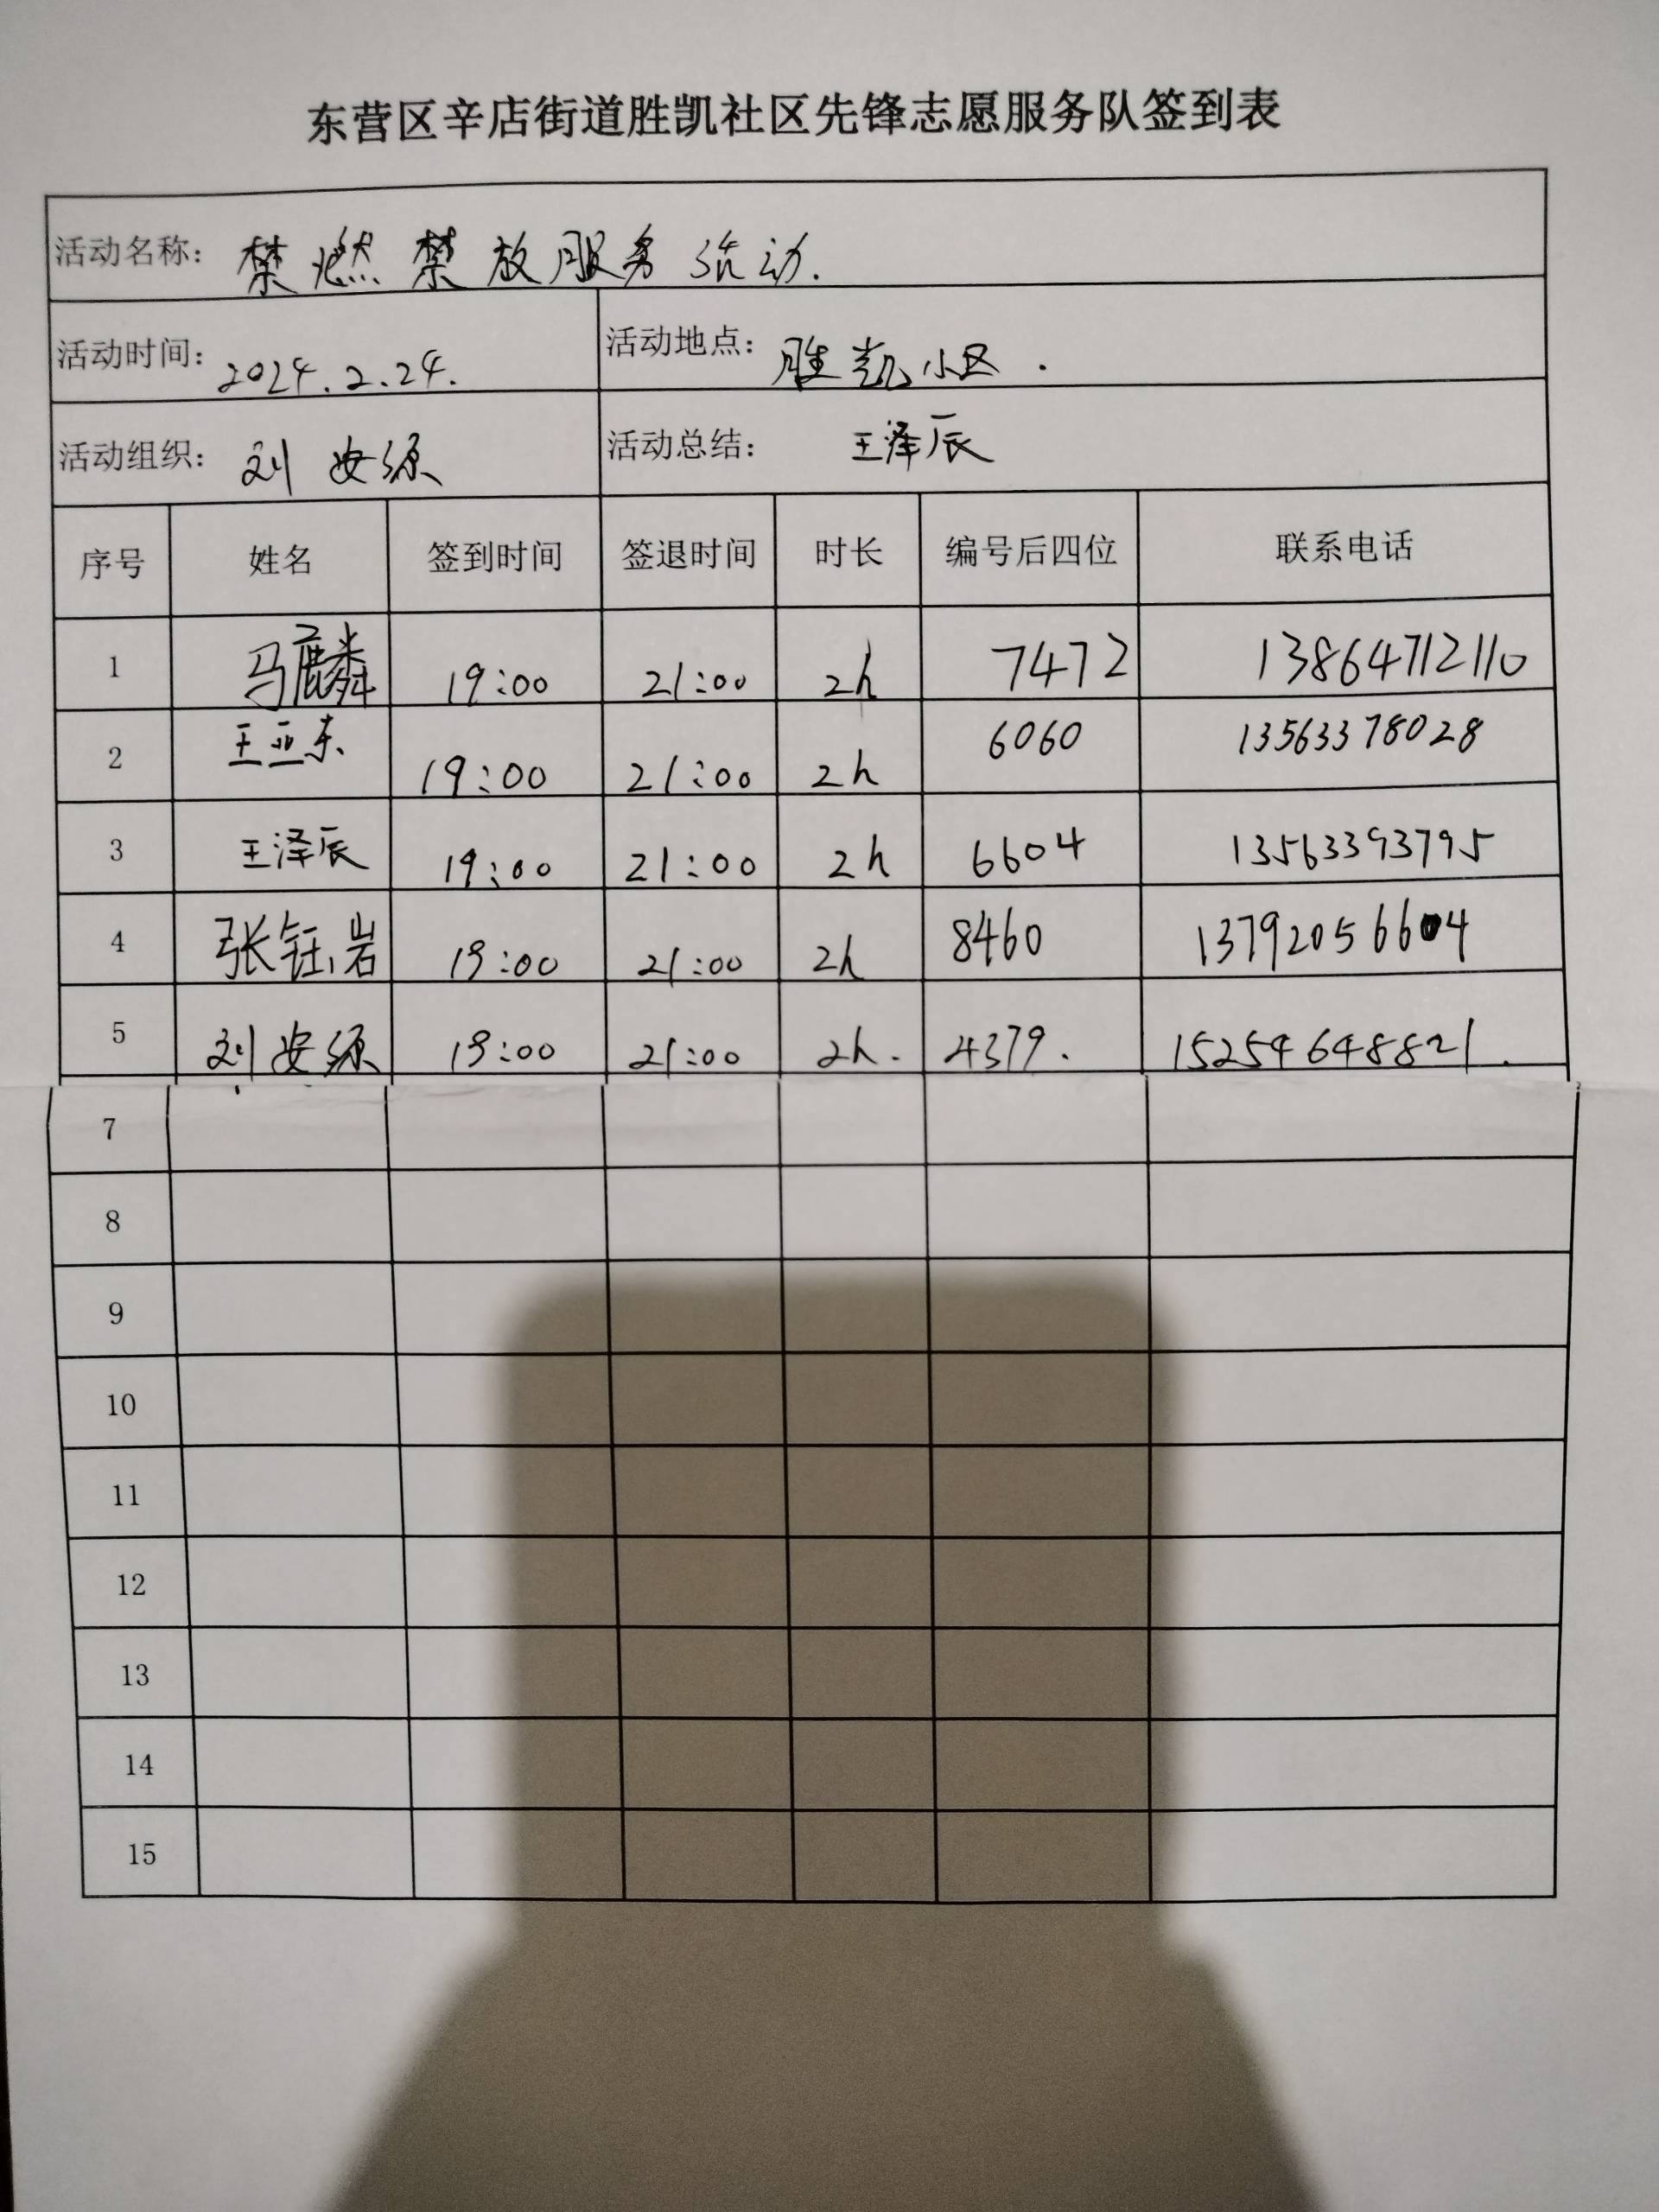 东营区辛店街道胜凯社区先锋志愿服务队签到表
活动名称: 禁燃禁放服务活动.
活动时间: 2024.2.24. 活动地点: 胜凯小区.
活动组织: 刘安源 活动总结: 王泽辰
序号 姓名 签到时间 签退时间 时长 编号后四位 联系电话
1 马麟 19:00 21:00 2h 7472 13864712110
2 王亚东 19:00 21:00 2h 6060 13563378028
3 王泽辰 19:00 21:00 2h 6604 13563393795
4 张钰岩 19:00 21:00 2h 8460 13792056604
5 刘安源 19:00 21:00 2h. 4379. 15254648821.
7
8
9
10
11
12
13
14
15